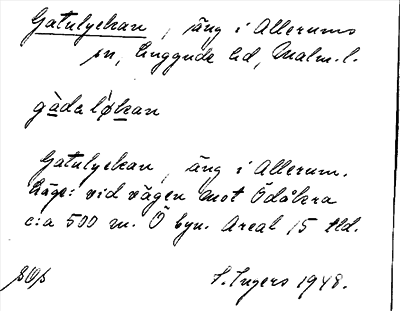 Gatulyckan, äng i Allerums
sn, Luggude hd, Malm. l.
gàda løkan
Gatulyckan, äng i Allerum.
Läge: vid vägen mot Ödåkra
c:a 500 m. Ö byn. Areal 15 tld.
I. Ingers 1948.